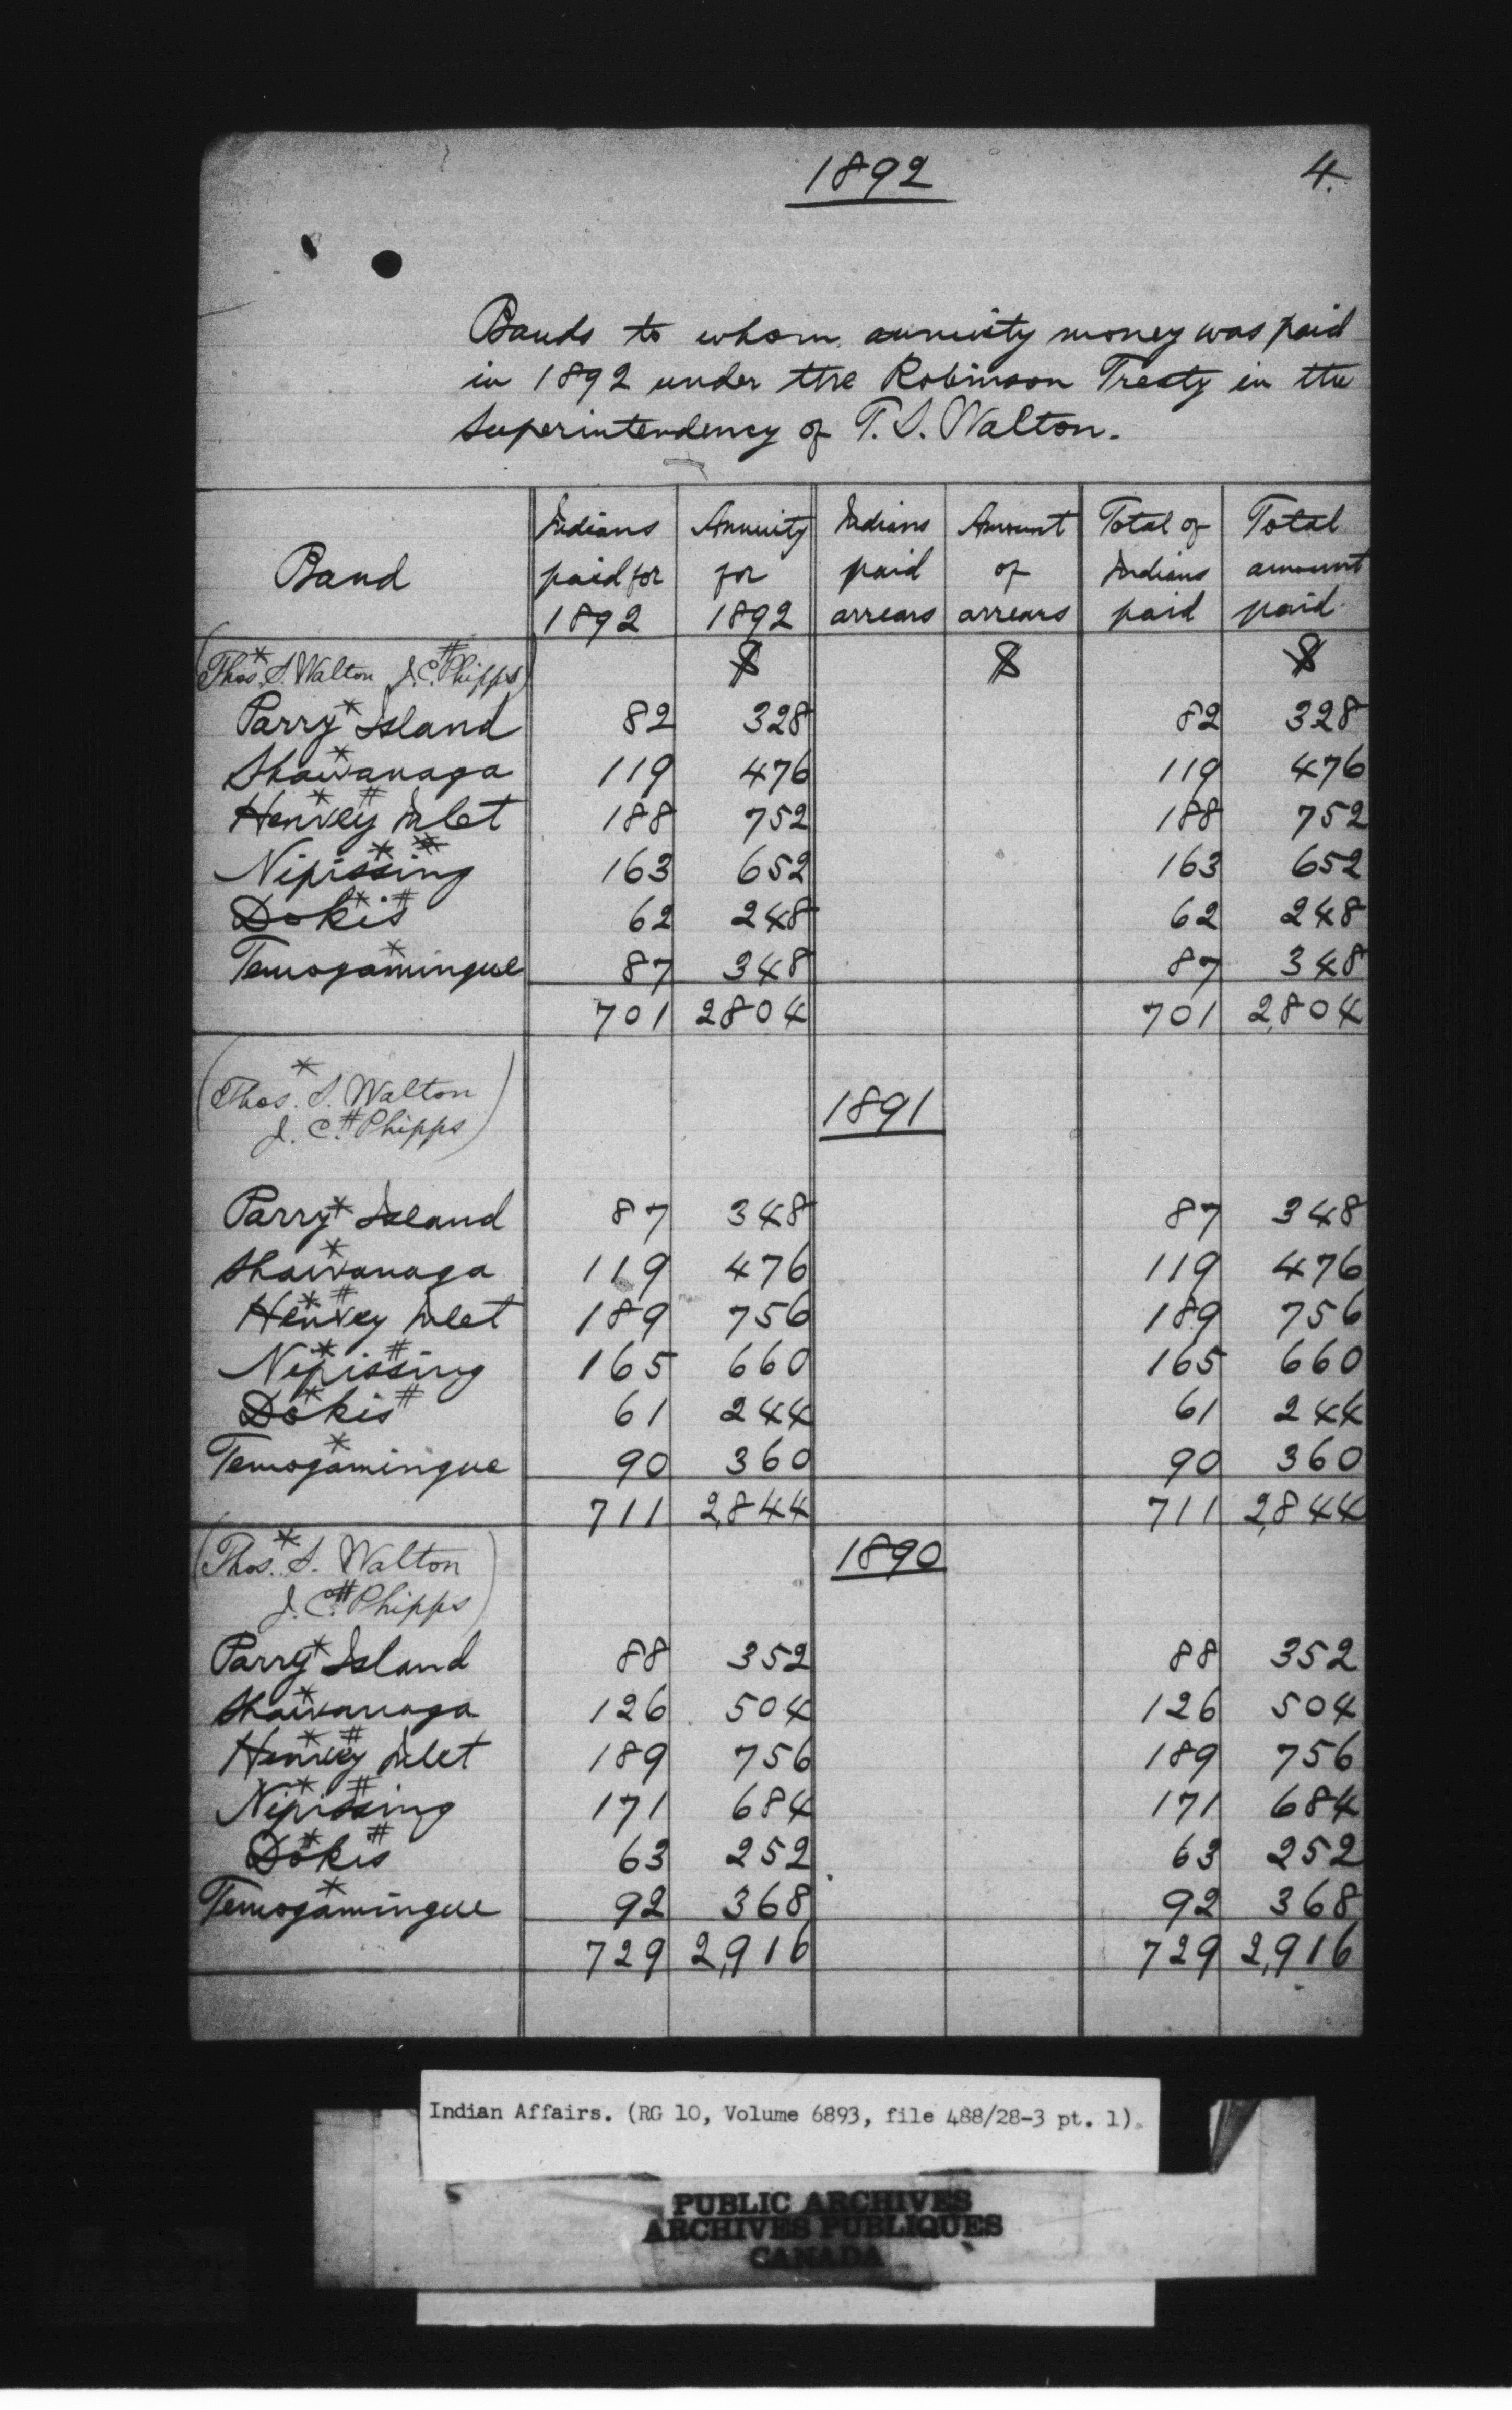 1892
4.
Bands to whom annuity money was paid
in 1892 under the Robinson Treaty in the
Superintendency of T. S. Walton.
Band | Indians paid for 1892 | Annuity for 1892 | Indians paid arrears | Amount of arrears | Total of Indians paid | Total amount paid.
(Thos.* S. Walton J. C.# Phipps) $ $ $
Parry* Island 82 328 82 328
Shawanaga* 119 476 119 476
Henvey*# Inlet 188 752 188 752
Nipissing*# 163 652 163 652
Dokis*# 62 248 62 248
Temogamingue* 87 348 87 348
701 2804 701 2,804
(Thos.* S. Walton
J. C.# Phipps)
1891
Parry* Island 87 348 87 348
Shawanaga* 119 476 119 476
Henvey*# Inlet 189 756 189 756
Nipissing*# 165 660 165 660
Dokis*# 61 244 61 244
Temogamingue* 90 360 90 360
711 2,844 711 2,844
(Thos.* S. Walton
J. C.# Phipps)
1890
Parry* Island 88 352 88 352
Shawanaga* 126 504 126 504
Henvey*# Inlet 189 756 189 756
Nipissing*# 171 684 171 684
Dokis*# 63 252 63 252
Temogamingue* 92 368 92 368
729 2,916 729 2,916
Indian Affairs. (RG 10, Volume 6893, file 488/28-3 pt. 1)
PUBLIC ARCHIVES
ARCHIVES PUBLIQUES
CANADA